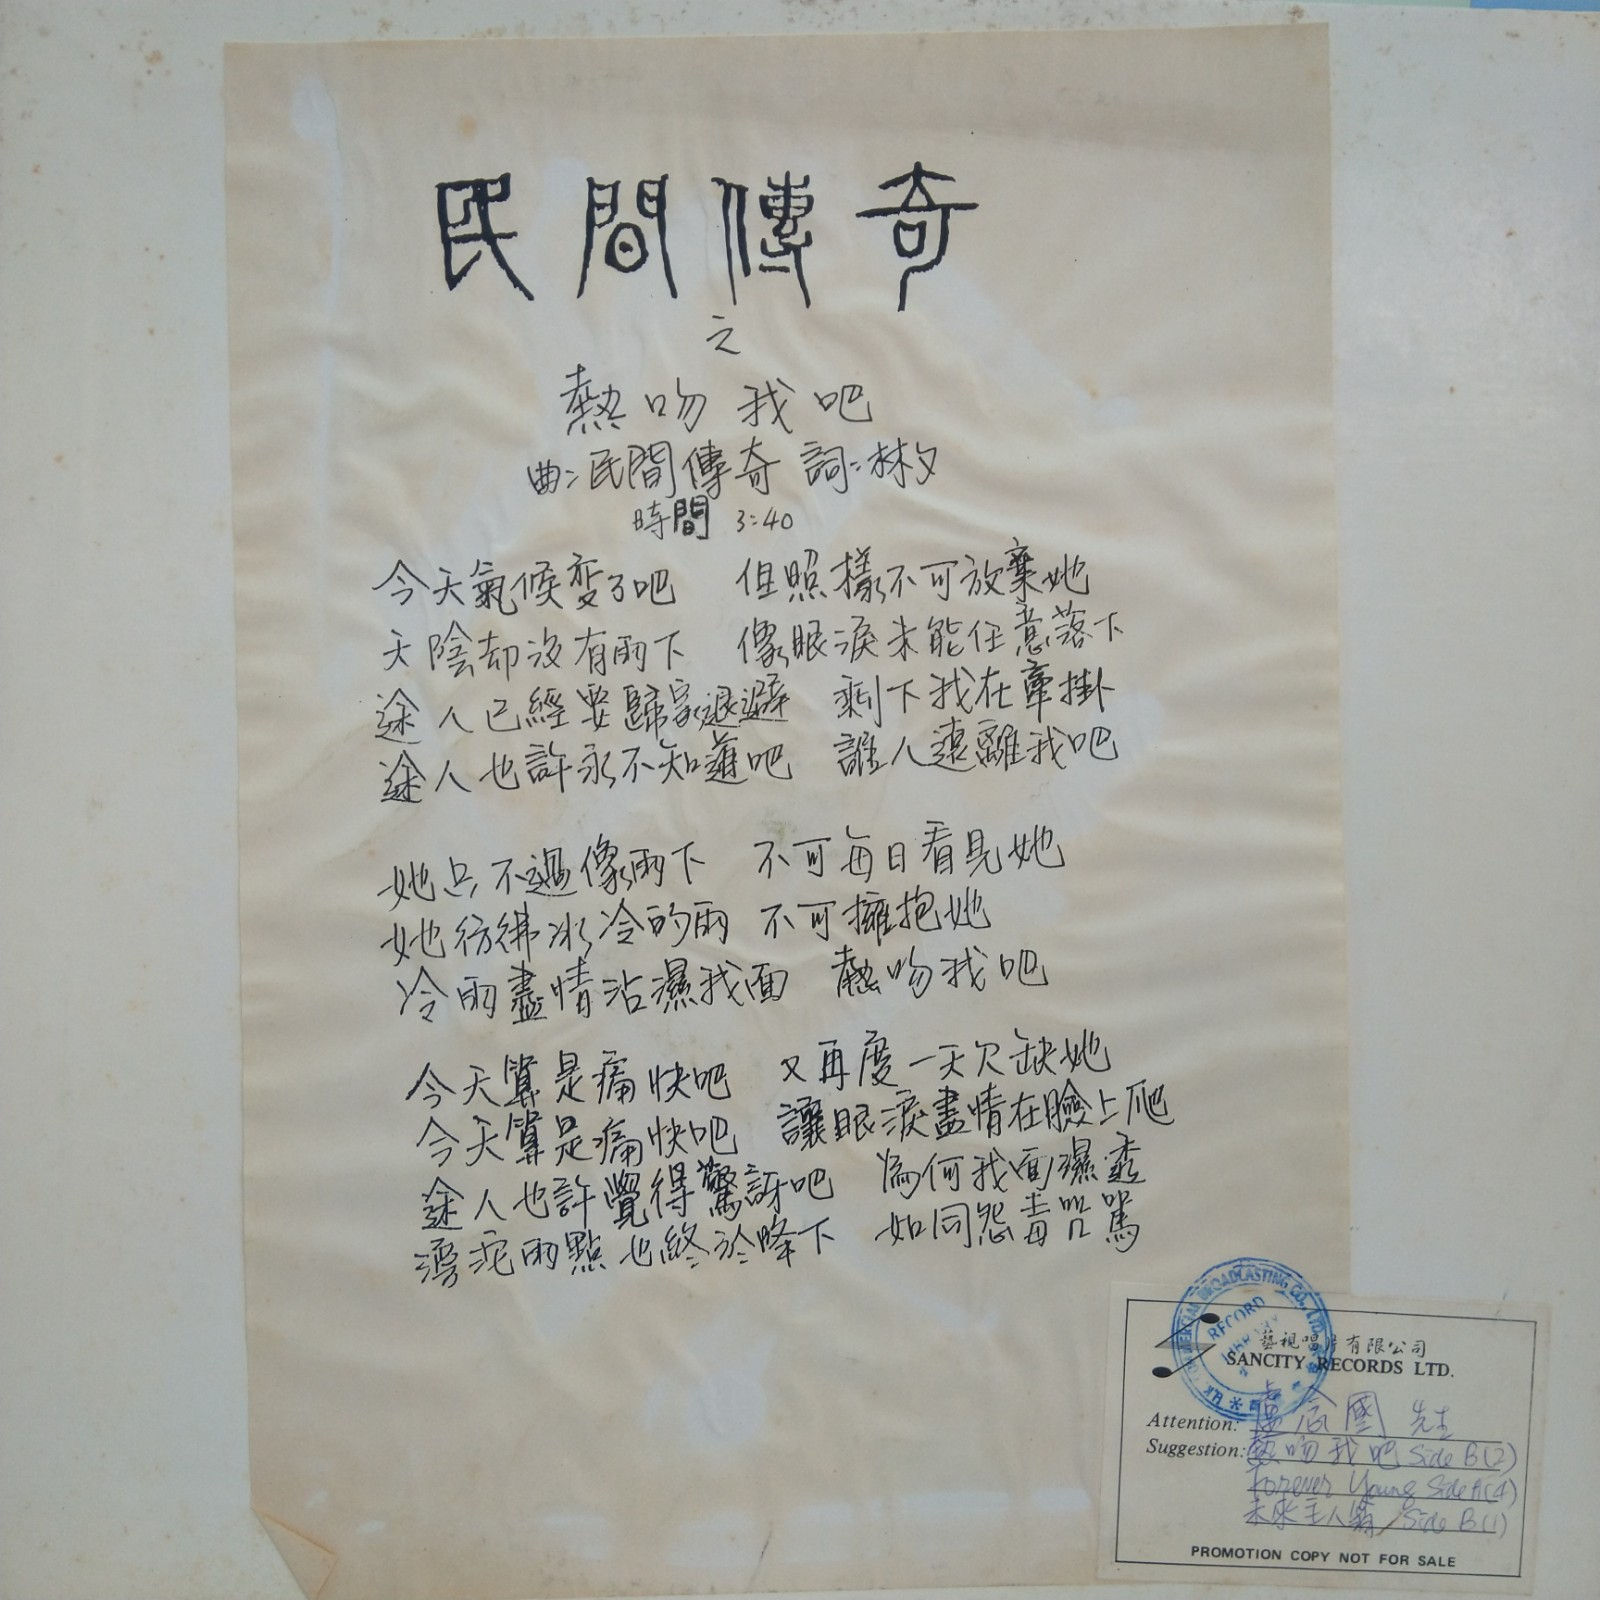 民間傳奇
之
熱吻我吧
曲:民間傳奇 詞:林夕
時間 3:40
今天氣候变了吧 但照樣不可放棄她
天陰却沒有雨下 像眼淚未能任意落下
途人已經要歸家退避 剩下我在牽掛
途人也許永不知道吧 誰人遠離我吧
她只不過像雨下 不可每日看見她
她彷彿冰冷的雨 不可擁抱她
冷雨盡情沾濕我面 熱吻我吧
今天算是痛快吧 又再度一天欠缺她
今天算是痛快吧 讓眼淚盡情在臉上爬
途人也許覺得驚訝吧 為何我面濕透
滂沱雨點也終於降下 如同怨毒咒罵
COMMERCIAL BROADCASTING CO., LTD.
RECORD LIBRARY
藝視唱片有限公司
SANCITY RECORDS LTD.
Attention: 國 先生
Suggestion: 熱吻我吧 Side B(2)
Forever Young Side A(4)
未來主人翁/Side B(1)
PROMOTION COPY NOT FOR SALE